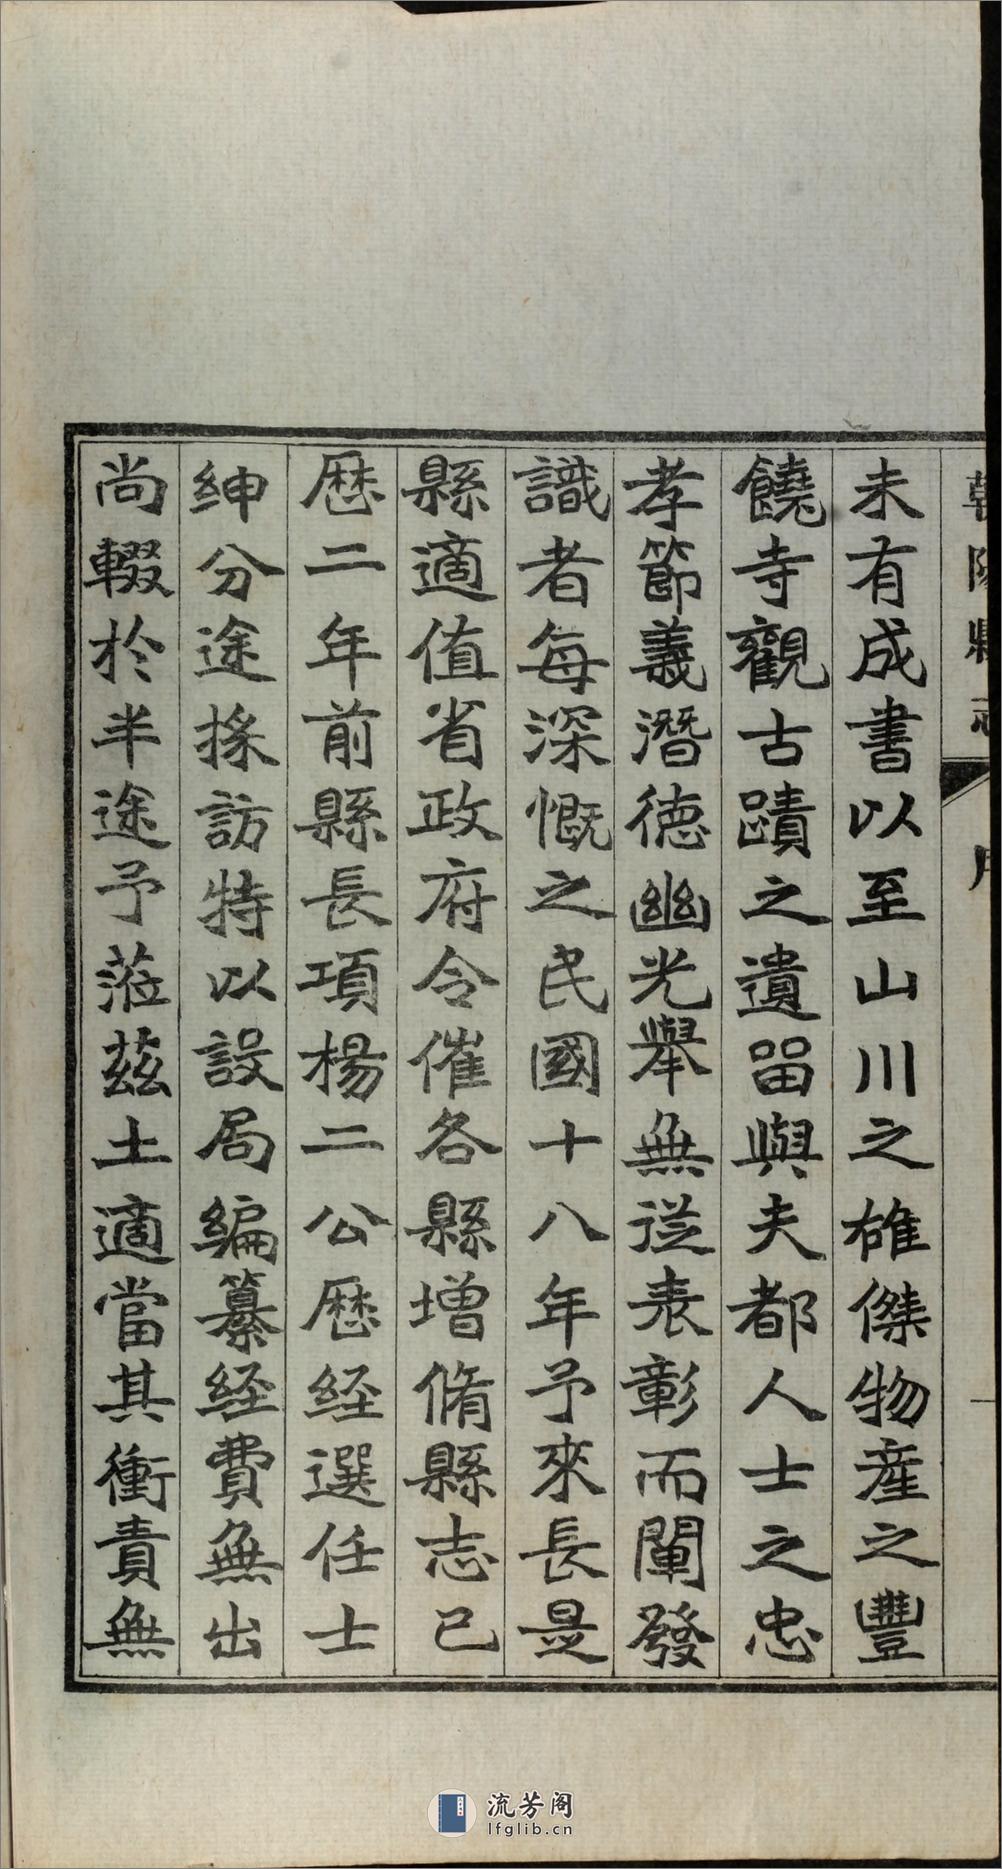 朝陽縣志
序
一
未有成書以至山川之雄傑物產之豐
饒寺觀古蹟之遺留與夫都人士之忠
孝節義潛德幽光舉無從表彰而闡發
識者每深慨之民國十八年予來長是
縣適值省政府令催各縣增脩縣志已
歷二年前縣長項楊二公歷經選任士
紳分途採訪特以設局編纂経費無出
尚輟於半途予蒞茲土適當其衝責無
流芳阁
lfglib.cn